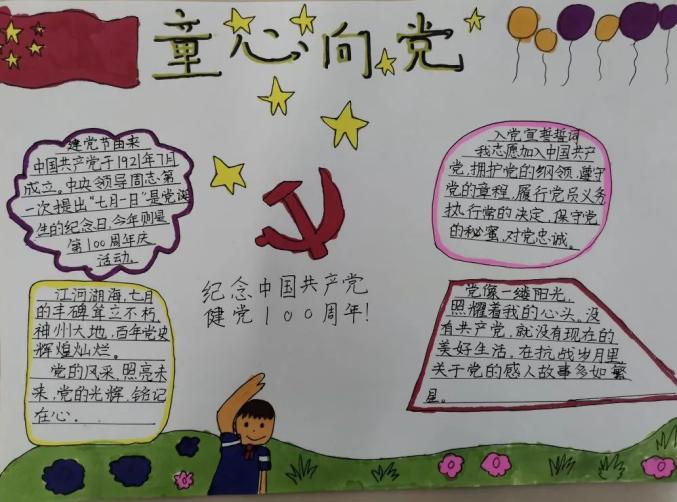 童心向党
建党节由来
中国共产党于1921年7月
成立。中央领导同志第
一次提出“七月一日”是党诞
生的纪念日,今年则是
第100周年庆
活动。
入党宣誓誓词
我志愿加入中国共产
党,拥护党的纲领,遵守
党的章程,履行党员义务
执行党的决定,保守党
的秘蜜,对党忠诚。
纪念中国共产党
健党100周年!
江河湖海,七月
的丰碑耸立不朽。
神州大地,百年党史
辉煌灿烂。
党的风采,照亮未
来,党的光辉,铭记
在心。
党像一缕阳光,
照耀着我的心头。没
有共产党,就没有现在的
美好生活,在抗战岁月里
关于党的感人故事多如繁
星。